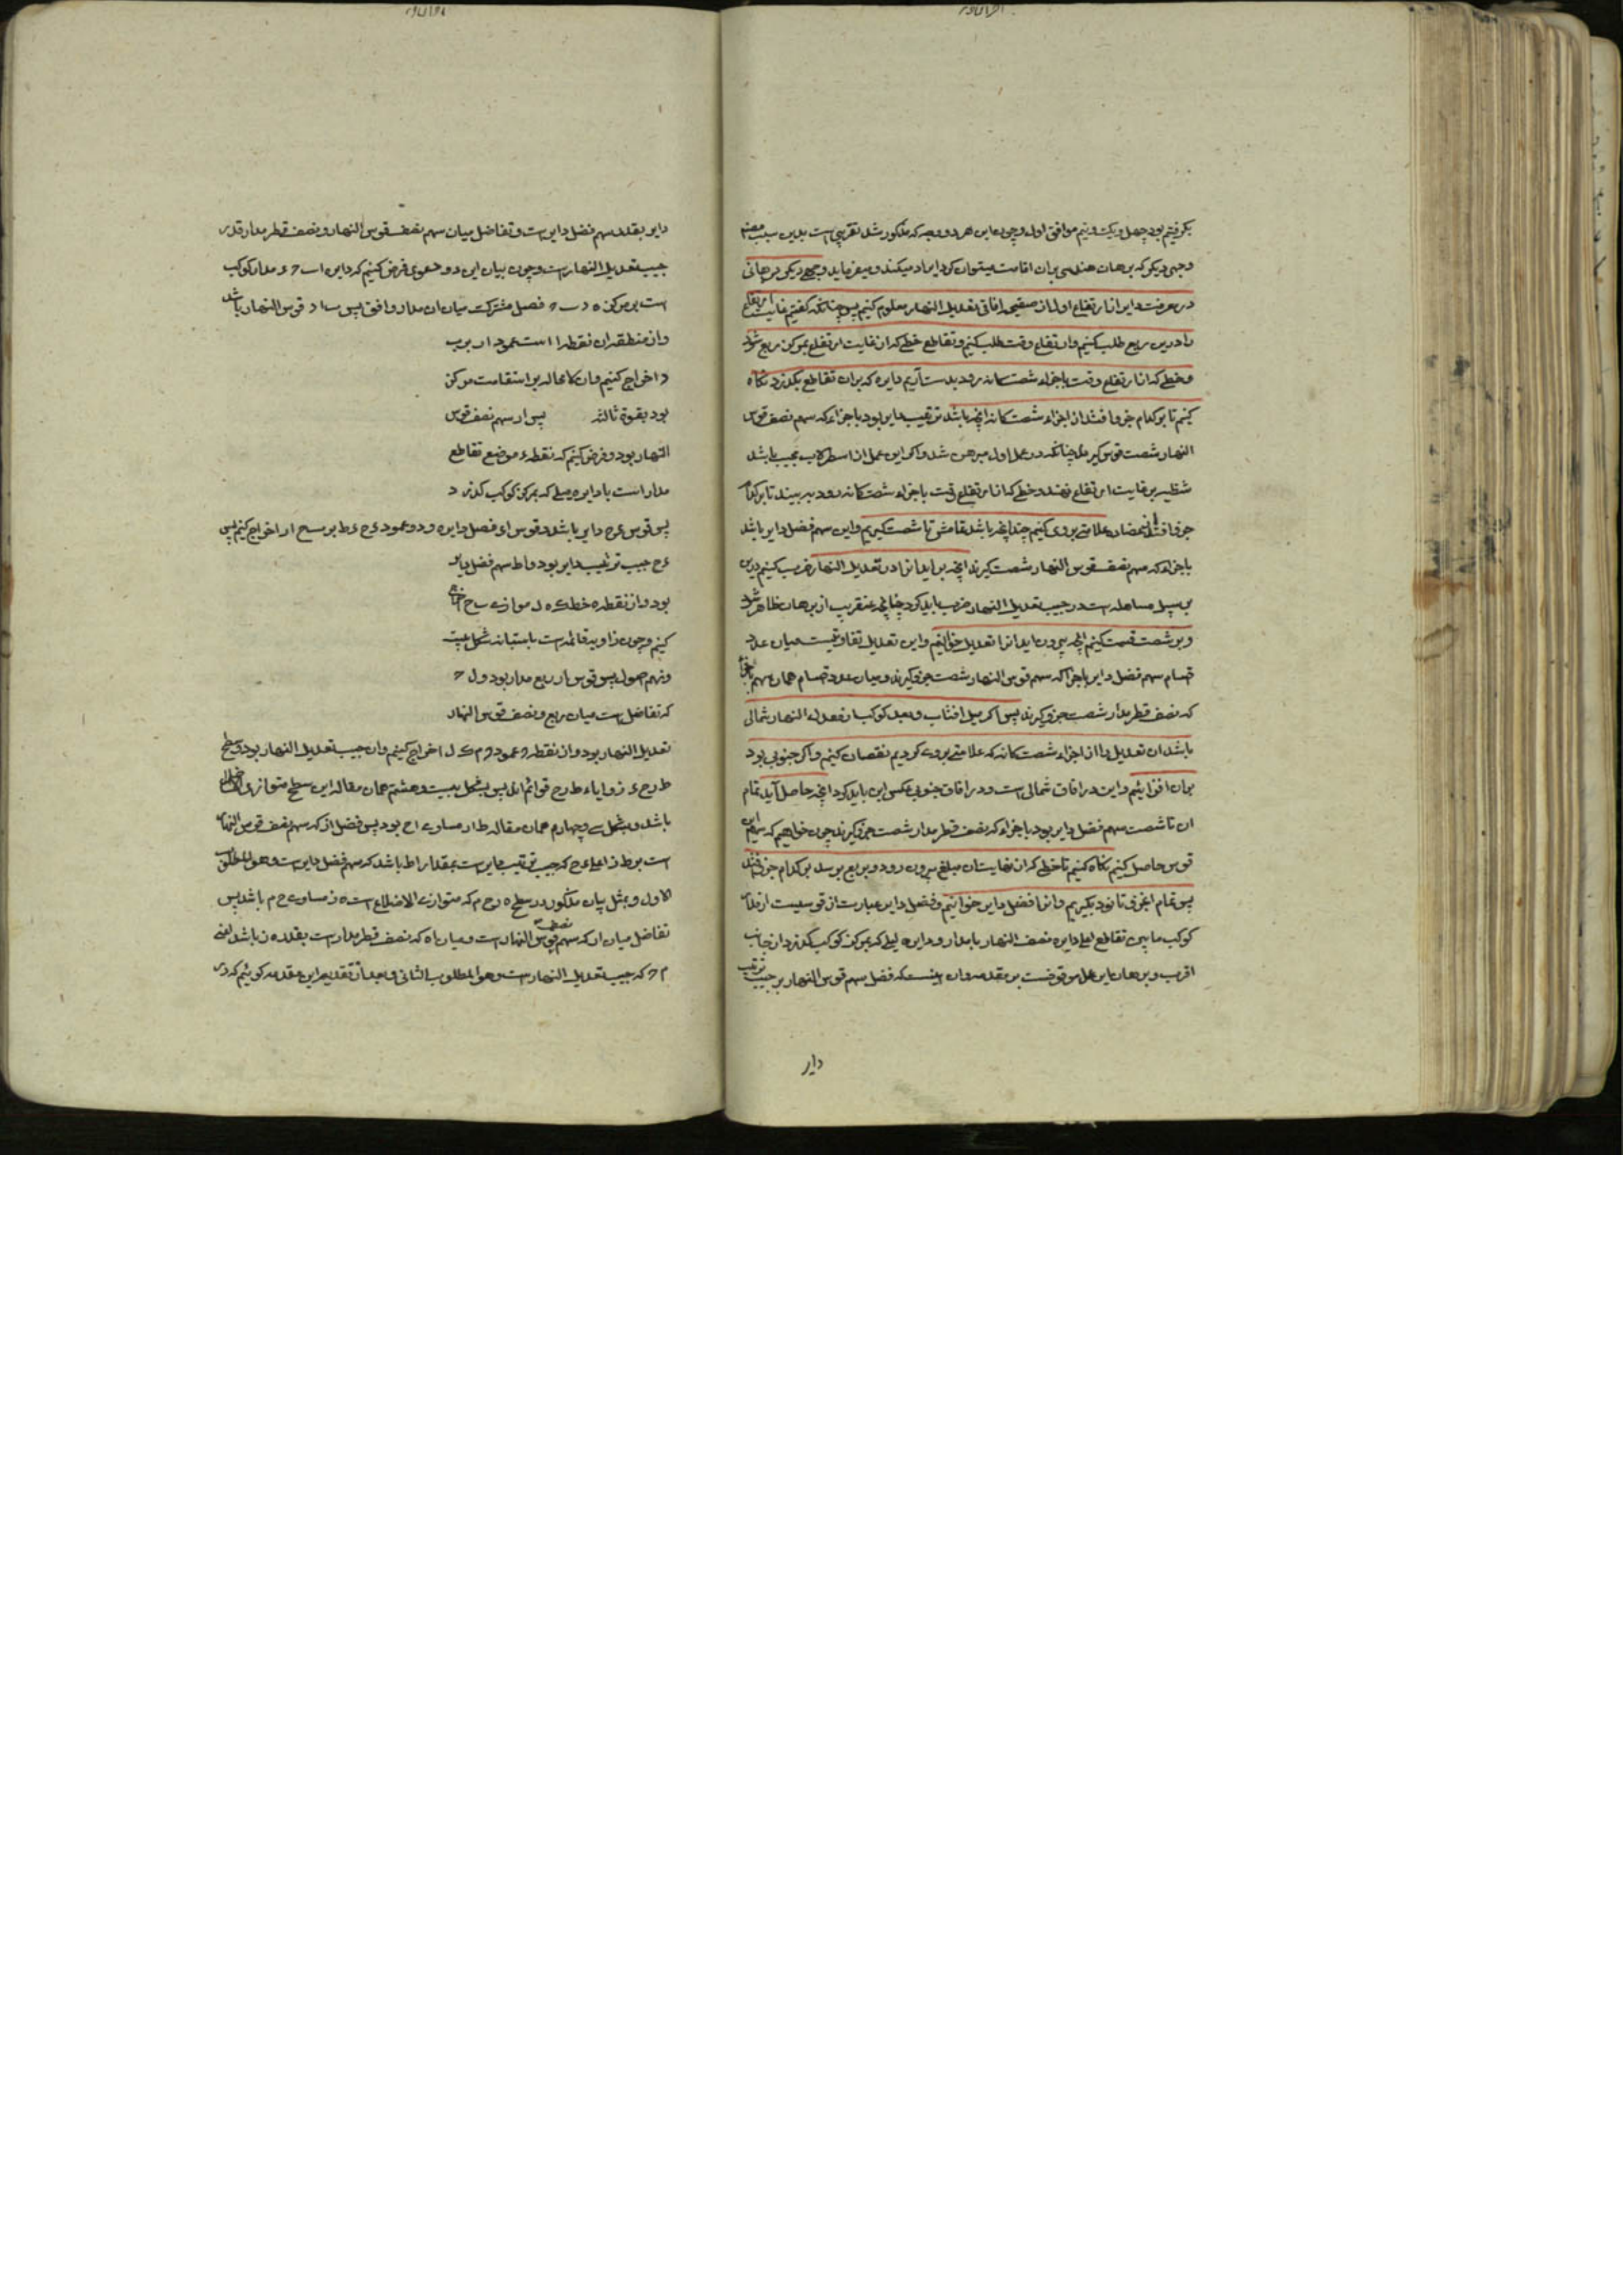 بکرفتیم بود چهل و یکت و نیم موافق اول و چون این هر دو وجه که مذکور شد تقریبی است بدین سبب مصنف
وجهی دیکر که برهان هندسی بران اقامت میتوان کرد ایراد میکند و میفرماید وجهی دیکر برهانی
در معرفت دایر از ارتفاع اول از صفیحه افاقی تعدیل النهار معلوم کنیم پس چنانکه کفتیم غایت ارتفاع
را درین ربع طلب کنیم و ارتفاع وقت طلب کنیم و تقاطع خطی که از غایت ارتفاع بمرکز ربع شود
و خطی که از ارتفاع وقت باجزاء شصت کانه رود بدست آریم دایره که بران تقاطع بکذرد نکاه
کنیم تا بر کدام جزو افتد از اجزاء شصت کانه انچه باشد ترتیب دایر بود باجزاء که سهم نصف قوس
النهار شصت قوس کیرند چنانکه در عمل اول مبرهن شد و اکر این عمل از اسطرلاب مجیب باشد
شظیه بر غایت ارتفاع نهند و خطی که از ارتفاع وقت باجزاء شصتکانه رود ببینند تا بر کدام
جزو افتد از عضاده علامتی بروی کنیم چندانچه باشد تمامش تا شصت کیریم و این سهم فضل دایر باشد
باجزاء که سهم نصف قوس النهار شصت کیرند انچه براید انرا در تعدیل النهار ضرب کنیم و این
بر سبیل مساهله است در جیب تعدیل النهار ضرب باید کرد چنانچه عنقریب از برهان ظاهر شود
و بر شصت قسمت کنیم انچه بیرون اید انرا تعدیل خوانیم و این تعدیل تفاوتیست میان عدد
قسام سهم فضل دایر باجزا که سهم قوس النهار شصت جزو کیرند و میان عدد قسام همان سهم باجزاء
که نصف قطر مدار شصت جزو کیرند پس اکر میل افتاب و بعد کوکب از معدل النهار شمالی
باشد ان تعدیل را از اجزاء شصت کانه که علامتی بروی کردیم نقصان کنیم و اکر جنوبی بود
بران افزاییم و این در افاق شمالی است و در افاق جنوبی عکس این باید کرد انچه حاصل آید تمام
ان تا شصت سهم فضل دایر بود باجزاء که نصف قطر مدار شصت جزو کیرند چون خواهیم که سهم این
قوس حاصل کنیم نکاه کنیم تا خطی که از نهایت ان مبلغ بیرون رود و بربع برسد بر کدام جزو افتد
پس تمام اجزو تا نود بکیریم و انرا فضل دایر خوانیم و فضل دایر عبارت از قوسیست از مدار
کوکب مابین تقاطع اعلی دایره نصف النهار با مدار و دایره میلی که بمرکز کوکب بکذرد از جانب
اقرب و برهان این عمل موقوفست بر مقدمه و ان اینست که فضل سهم قوس النهار بر جیب ترتیب
دایر
دایر بقدر سهم فضل دایر است و تفاضل میان سهم نصف قوس النهار و نصف قطر مدار قدر
جیب تعدیل النهار است و چون بیان این دو دعوی فرض کنیم که دایره ا ب ح ء مدار کوکب
است بر مرکز ه و ب ح فصل مشترک میان ان مدار و افق پس ب ا د قوس النهار باشد
و از منتصف ان نقطه ا است عمود ا ر بر ب
د اخراج کنیم و ان لا محاله بر استقامت مرکز
بود بقوة ثالثه پس ا ر سهم نصف قوس
النهار بود و فرض کنیم که نقطه ء موضع تقاطع
مدار است با دایره میلی که بمرکز کوکب کذرد
پس قوس ء ح دایر باشد و قوس ا ء فضل دایره و دو عمود ء ح ء ط بر ب ح ا ر اخراج کنیم پس
ء ح جیب ترتیب دایر بود و ا ط سهم فضل دایر
بود و از نقطه ه خط ک ه ل موازی ب ح اخراج
کنیم و چون زاویه قائمه است باستبانه شکل بیست
و نهم اصول پس قوس ا ر ربع مدار بود و ل ح
که تفاضل است میان ربع و نصف قوس النهار
تعدیل النهار بود و از نقطه ر عمود ر م ک ل اخراج کنیم و ان جیب تعدیل النهار بود و سطح
ط ر ح ء زوایاء ط ر ح قوائم اند پس بشکل بیست و هشتم همان مقاله این سطح متوازی الاضلاع
باشد و بشکل سی و چهارم همان مقاله ط ر مساوی ء ح بود پس فضل ا ر که سهم نصف قوس النهار
است بر ط ر اعنی ء ح که جیب ترتیب دایر است بمقدار ا ط باشد که سهم فضل دایر است و هو المطلوب
الاول و بمثل بیان مذکور در سطح ه ر ح م که متوازی الاضلاع است ه ر مساوی ح م باشد پس
تفاضل میان ا ر که سهم نصف قوس النهار است و میان ا ه که نصف قطر مدار است بقدر ه ر باشد اعنی
م ح که جیب تعدیل النهار است و هو المطلوب الثانی و بعد از تقدیم این مقدمه کوئیم که در